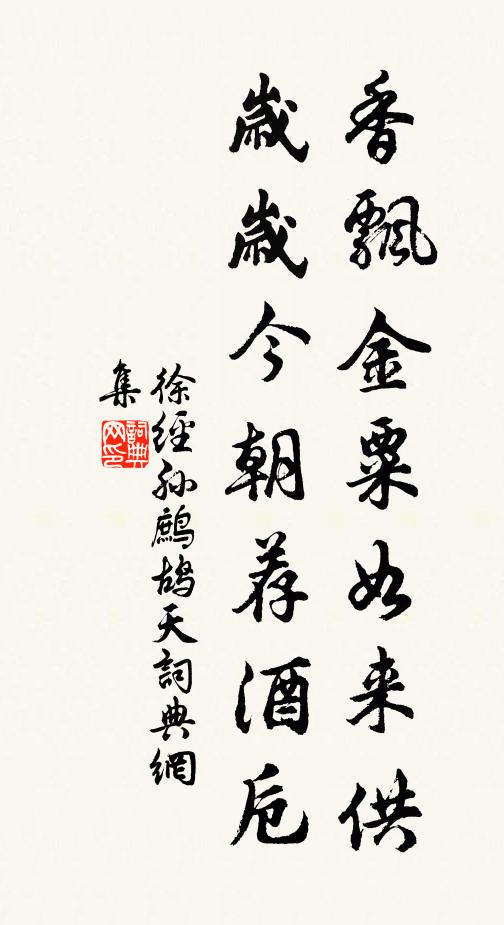 香飄金粟如来供
歲歲今朝荐酒卮
徐經孫鷓鴣天詞典網
集
詞典网印